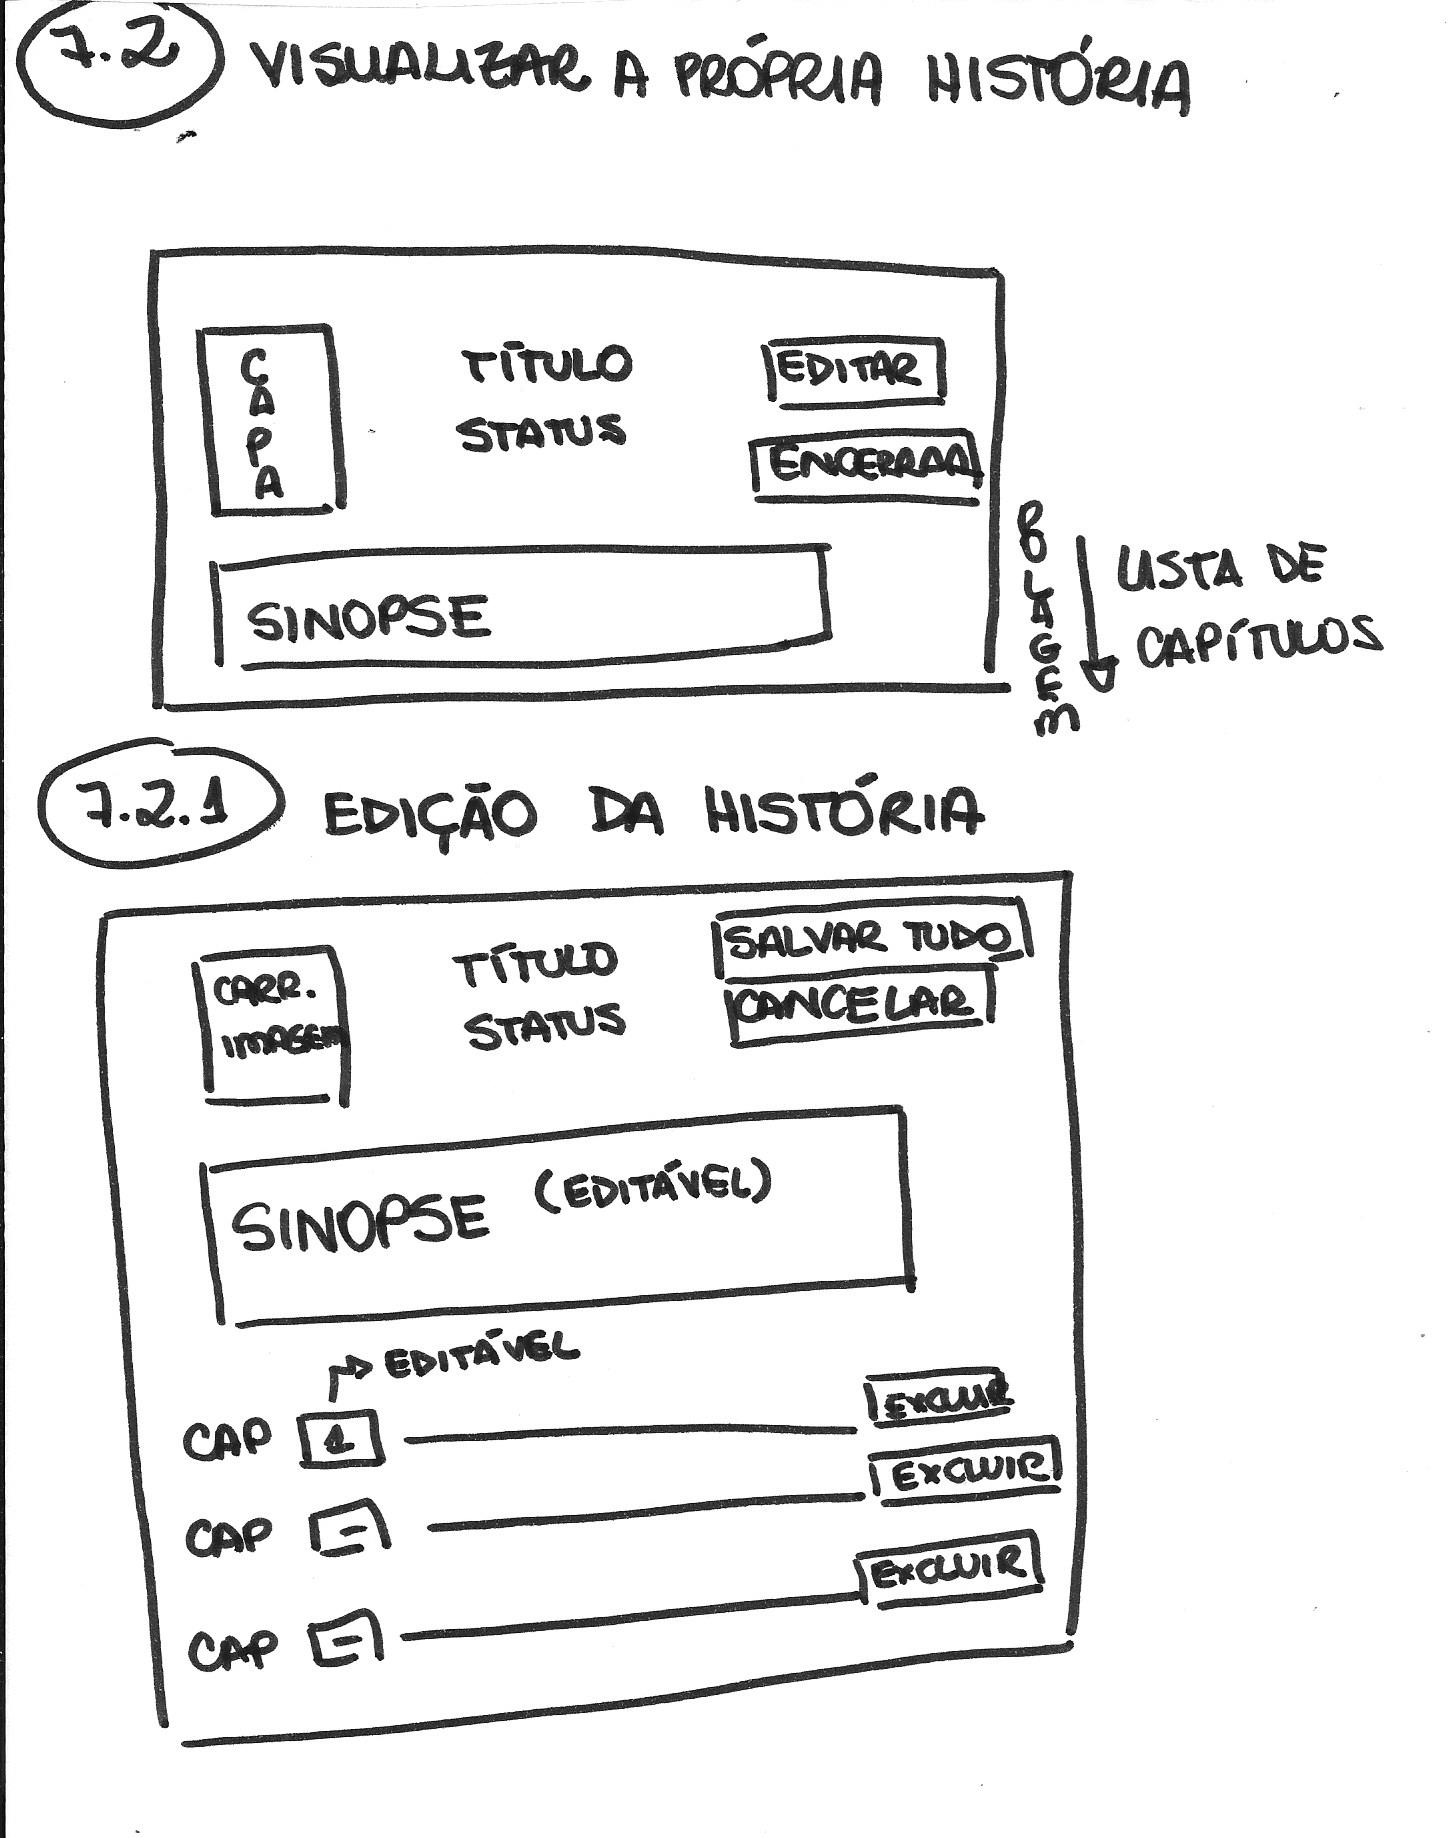 7.2 VISUALIZAR A PRÓPRIA HISTÓRIA
CAPA
TÍTULO
STATUS
EDITAR
ENCERRAR
SINOPSE
ROLAGEM
LISTA DE
CAPÍTULOS
7.2.1 EDIÇÃO DA HISTÓRIA
CARR.
IMAGEM
TÍTULO
STATUS
SALVAR TUDO
CANCELAR
SINOPSE (EDITÁVEL)
EDITÁVEL
CAP 1 EXCLUIR
CAP - EXCLUIR
CAP - EXCLUIR